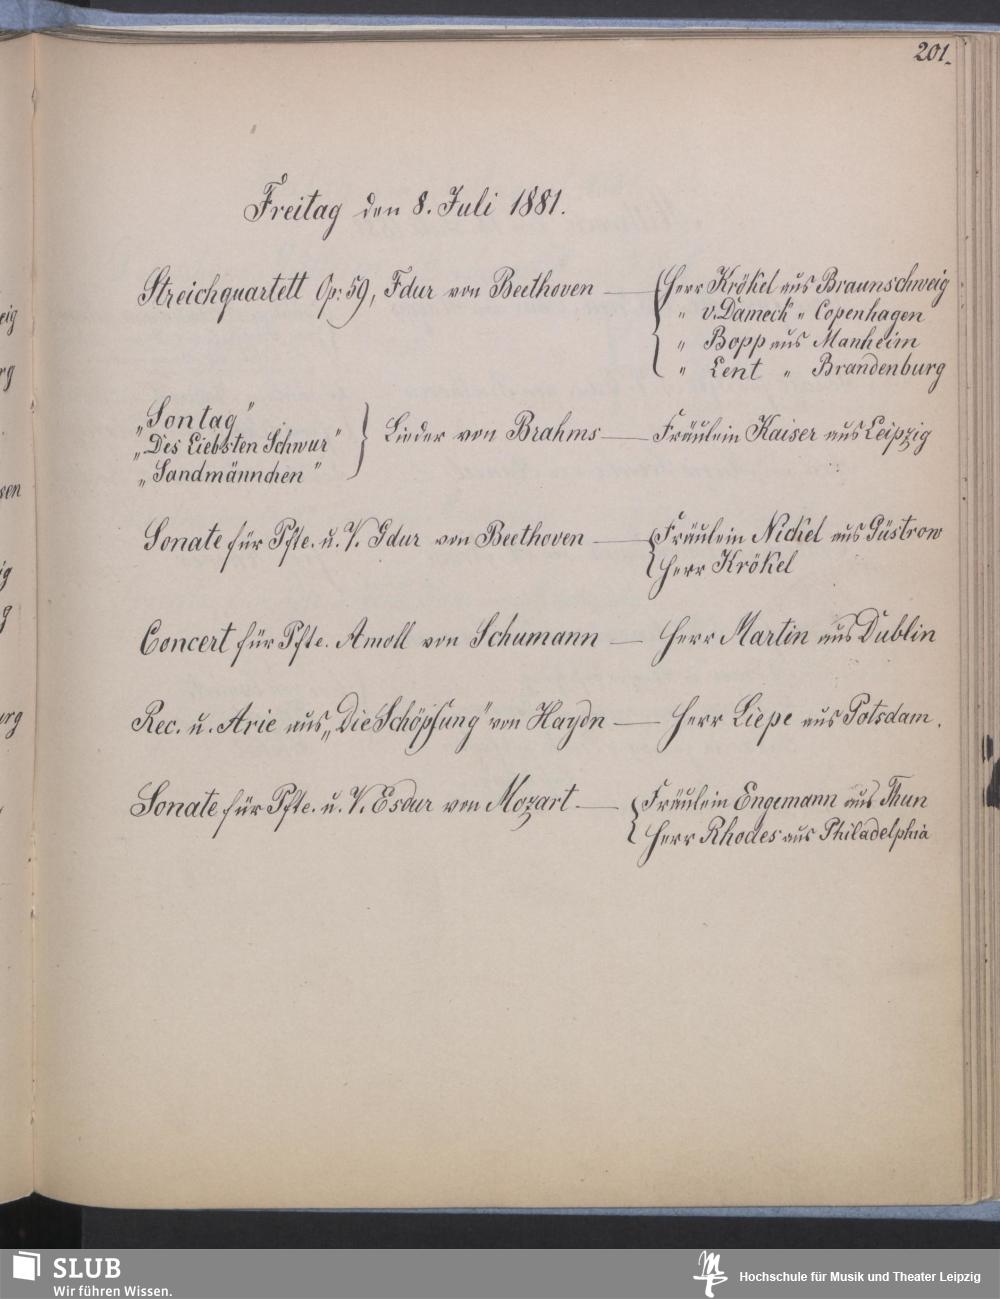 201.
Freitag den 8. Juli 1881.
Streichquartett Op: 59, Fdur von Beethoven — Herr Krökel aus Braunschweig
" v. Dameck " Copenhagen
" Bopp aus Manheim
" Lent " Brandenburg
„Sontag"
„Des Liebsten Schwur"
„Sandmännchen"
Lieder von Brahms — Fräulein Kaiser aus Leipzig
Sonate für Pfte. u. V. Gdur von Beethoven — Fräulein Nickel aus Güstrow
Herr Krökel
Concert für Pfte. Amoll von Schumann — Herr Martin aus Dublin
Rec. u. Arie aus „Die Schöpfung" von Haydn — Herr Liepe aus Potsdam.
Sonate für Pfte. u. V. Esdur von Mozart — Fräulein Engemann aus Thun
Herr Rhodes aus Philadelphia
eig
rg
sen
ig
g
urg
SLUB
Wir führen Wissen.
Hochschule für Musik und Theater Leipzig